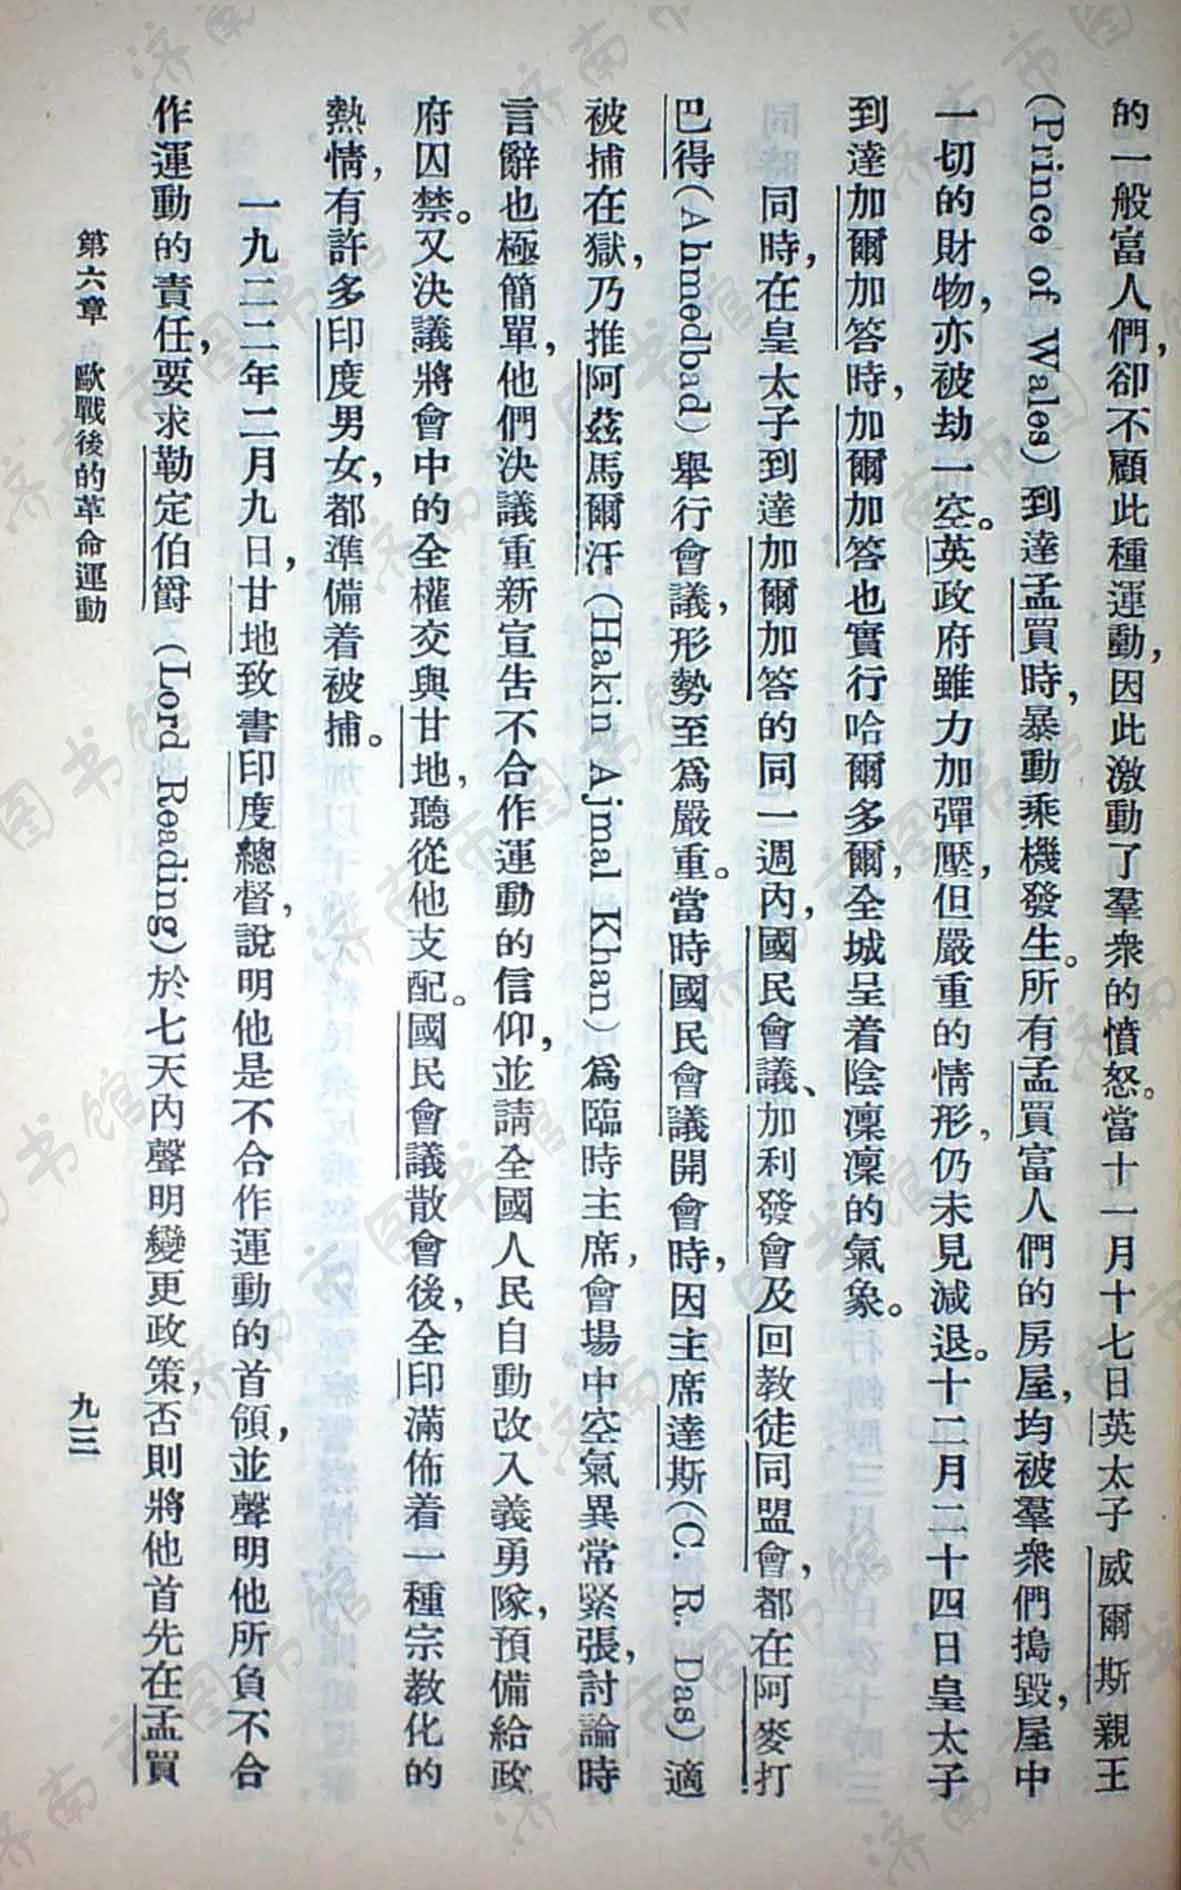 的一般富人們，卻不顧此種運動，因此激動了羣衆的憤怒。當十一月十七日英太子威爾斯親王
(Prince of Wales)到達孟買時，暴動乘機發生。所有孟買富人們的房屋，均被羣衆們搗毀，屋中
一切的財物，亦被劫一空。英政府雖力加彈壓，但嚴重的情形，仍未見減退。十二月二十四日皇太子
到達加爾加答時，加爾加答也實行哈爾多爾，全城呈着陰凜凜的氣象。
同時，在皇太子到達加爾加答的同一週內，國民會議、加利發會及回教徒同盟會，都在阿麥打
巴得(Ahmedbad)舉行會議，形勢至爲嚴重。當時國民會議開會時，因主席達斯(C. R. Das)適
被捕在獄，乃推阿茲馬爾汗(Hakin Ajmal Khan)爲臨時主席，會場中空氣異常緊張，討論時
言辭也極簡單，他們決議重新宣告不合作運動的信仰，並請全國人民自動改入義勇隊，預備給政
府囚禁。又決議將會中的全權交與甘地，聽從他支配。國民會議散會後，全印滿佈着一種宗教化的
熱情，有許多印度男女，都準備着被捕。
一九二二年二月九日，甘地致書印度總督，說明他是不合作運動的首領，並聲明他所負不合
作運動的責任，要求勒定伯爵(Lord Reading)於七天內聲明變更政策，否則將他首先在孟買
第六章 歐戰後的革命運動
九三
济南市图书馆